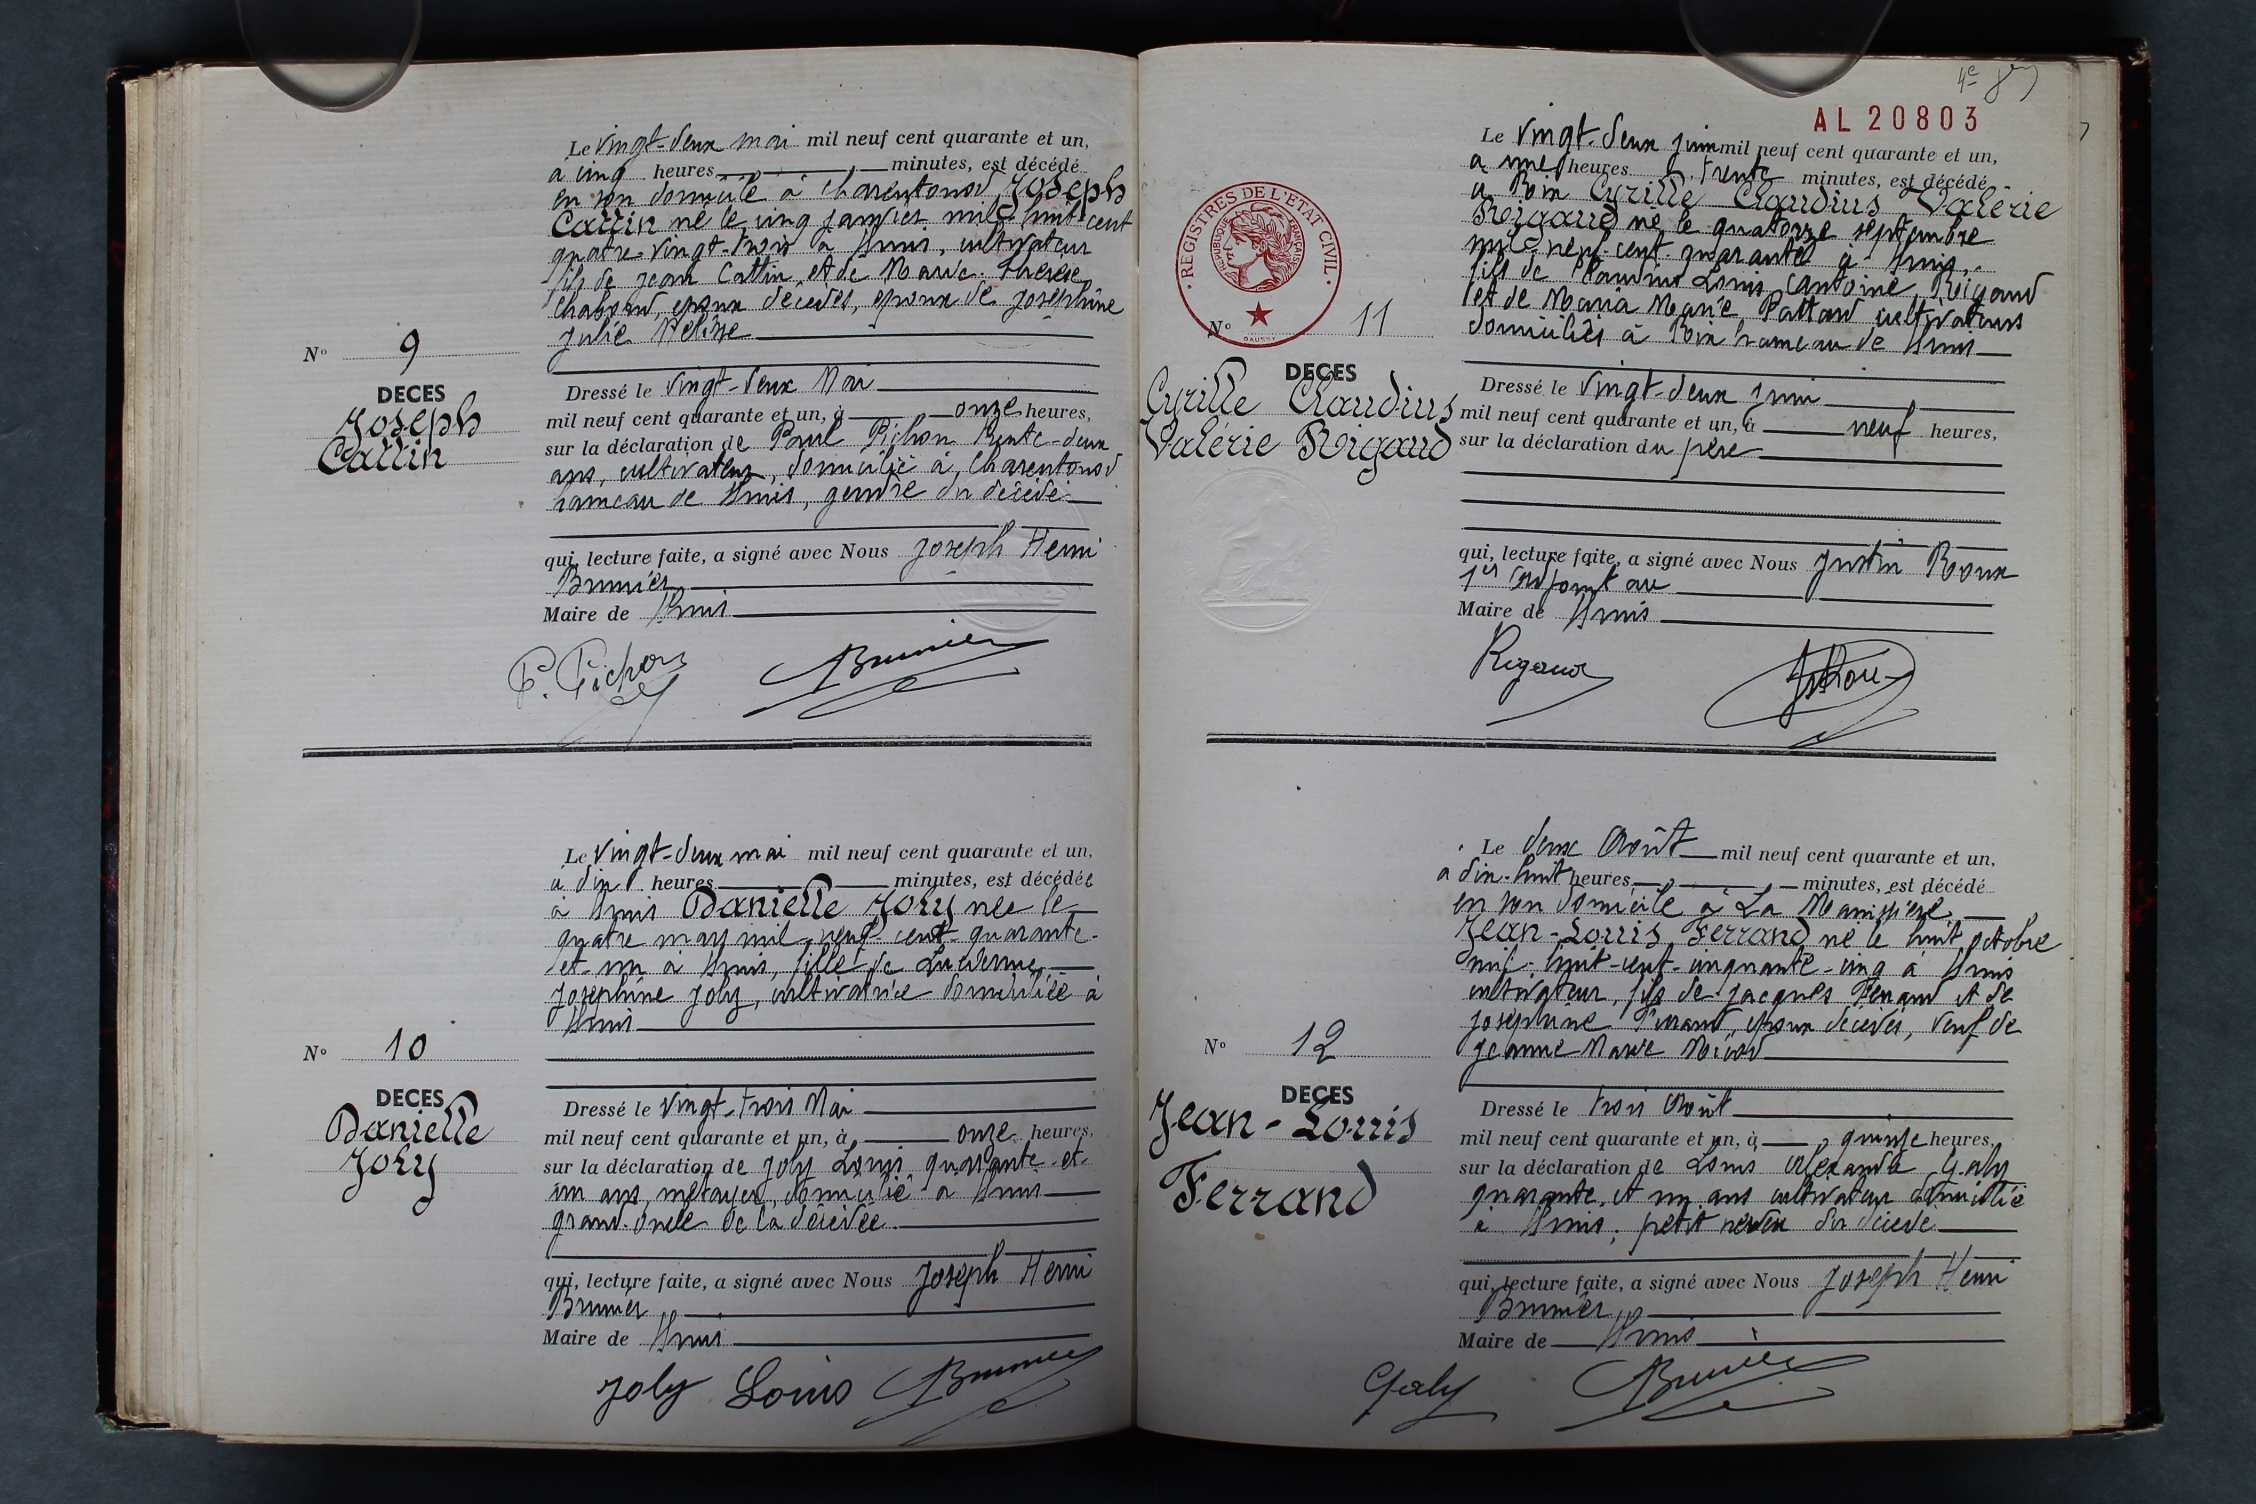 Le vingt-deux mai mil neuf cent quarante et un,
à cinq heures minutes, est décédé
en son domicile à Charentonod Joseph
Cattin né le cinq janvier mil huit cent
quatre-vingt-trois à Arnis, cultivateur
fils de Jean Cattin et de Marie-Thérèse
époux décédés, époux de Joséphine
Julie
N° 9
DECES
Joseph
Cattin
Dressé le vingt-deux Mai
mil neuf cent quarante et un, à onze heures,
sur la déclaration de Paul Pichon trente-deux
ans, cultivateur, domicilié à Charentonod
hameau de gendre du décédé
qui, lecture faite, a signé avec Nous Joseph Henri
Brunier
Maire de
P. Pichon Brunier
Le vingt-deux mai mil neuf cent quarante et un,
à dix heures minutes, est décédée
à Danielle Joly née le
quatre mars mil neuf cent quarante-
et-un à fille de Lucienne
Joséphine Joly, cultivatrice domiciliée à
N° 10
DECES
Danielle
Joly
Dressé le vingt-trois Mai
mil neuf cent quarante et un, à onze heures,
sur la déclaration de Joly Louis quarante-et-
un ans, métayer, domicilié à
grand-oncle de la décédée
qui, lecture faite, a signé avec Nous Joseph Henri
Brunier
Maire de
Joly Louis Brunier
4e
AL 20803
Le vingt-deux juin mil neuf cent quarante et un,
à une heures trente minutes, est décédé
à Cyrille Claudius Valérie
Rigaud né le quatorze septembre
mil neuf cent quarante à
fils de Claudius Louis Antoine Rigaud
et de Maria Marie cultivateurs
domiciliés à hameau de
REGISTRES DE L'ETAT CIVIL
REPUBLIQUE FRANÇAISE
N° 11
DECES
Cyrille Claudius
Valérie Rigaud
Dressé le vingt-deux juin
mil neuf cent quarante et un, à neuf heures,
sur la déclaration du père
qui, lecture faite, a signé avec Nous Justin Roux
1er Adjoint au
Maire de
Rigaud
Le deux Août mil neuf cent quarante et un,
à dix-huit heures minutes, est décédé
en son domicile à La
Jean-Louis Ferrand né le huit octobre
mil-huit-cent-cinquante-cinq à
cultivateur, fils de Jacques Ferrand et de
Joséphine époux décédés, veuf de
Jeanne Marie
N° 12
DECES
Jean-Louis
Ferrand
Dressé le trois Août
mil neuf cent quarante et un, à quinze heures,
sur la déclaration de Louis Alexandre Galy
quarante et un ans cultivateur domicilié
à petit neveu du décédé
qui, lecture faite, a signé avec Nous Joseph Henri
Brunier
Maire de
Galy Brunier